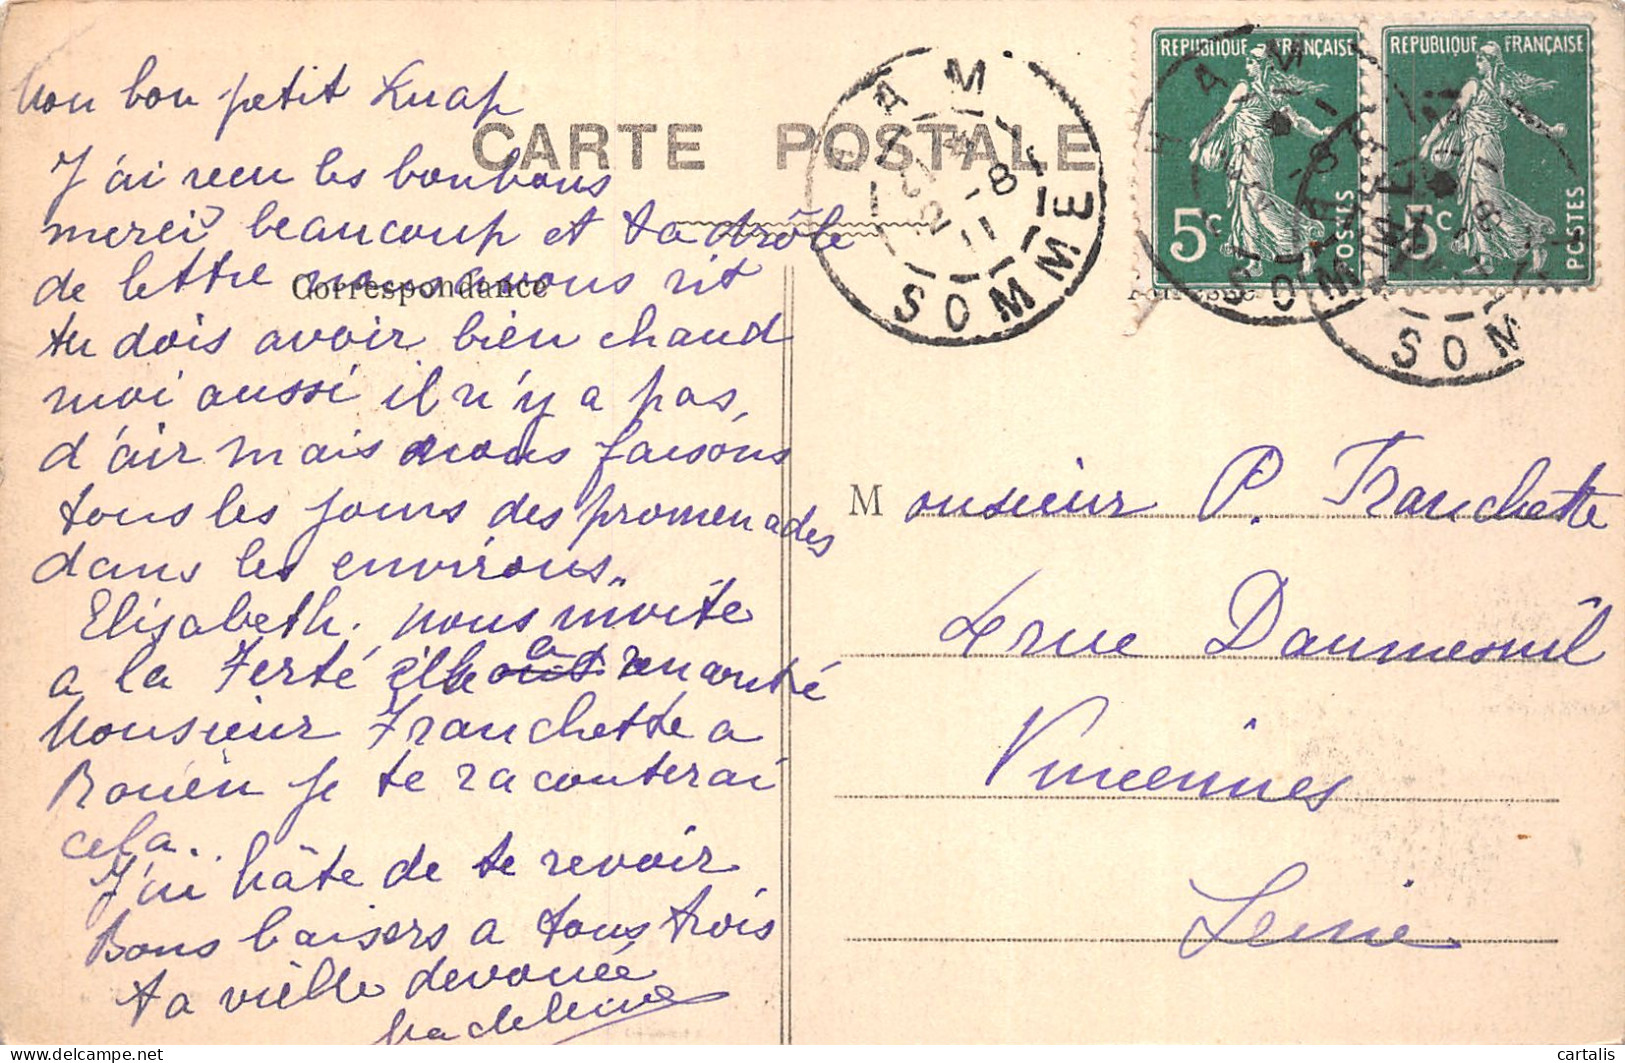 CARTE POSTALE
Correspondance
Mon bon petit Knap
J'ai reçu les bonbons
merci beaucoup et ta drôle
de lettre nous avons rit
tu dois avoir bien chaud
moi aussi il n'y a pas
d'air mais nous faisons
tous les jours des promenades
dans les environs.
Elisabeth. nous invite
a la Ferté elle a rencontré
Monsieur Franchette a
Rouen je te raconterai
cela.
J'ai hâte de te revoir
Bons baisers a tous trois
ta vielle devouée
Madeleine
REPUBLIQUE FRANÇAISE
5c
POSTES
REPUBLIQUE FRANÇAISE
5c
POSTES
HAM
SOMME
HAM
SOMME
HAM
SOMME
Monsieur P. Franchette
rue Daumesnil
Vincennes
Seine
cartalis